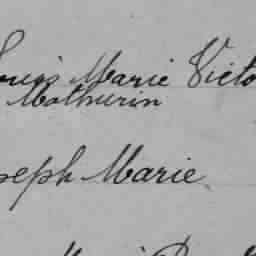 Louis Marie Victo
Mathurin
oseph Marie